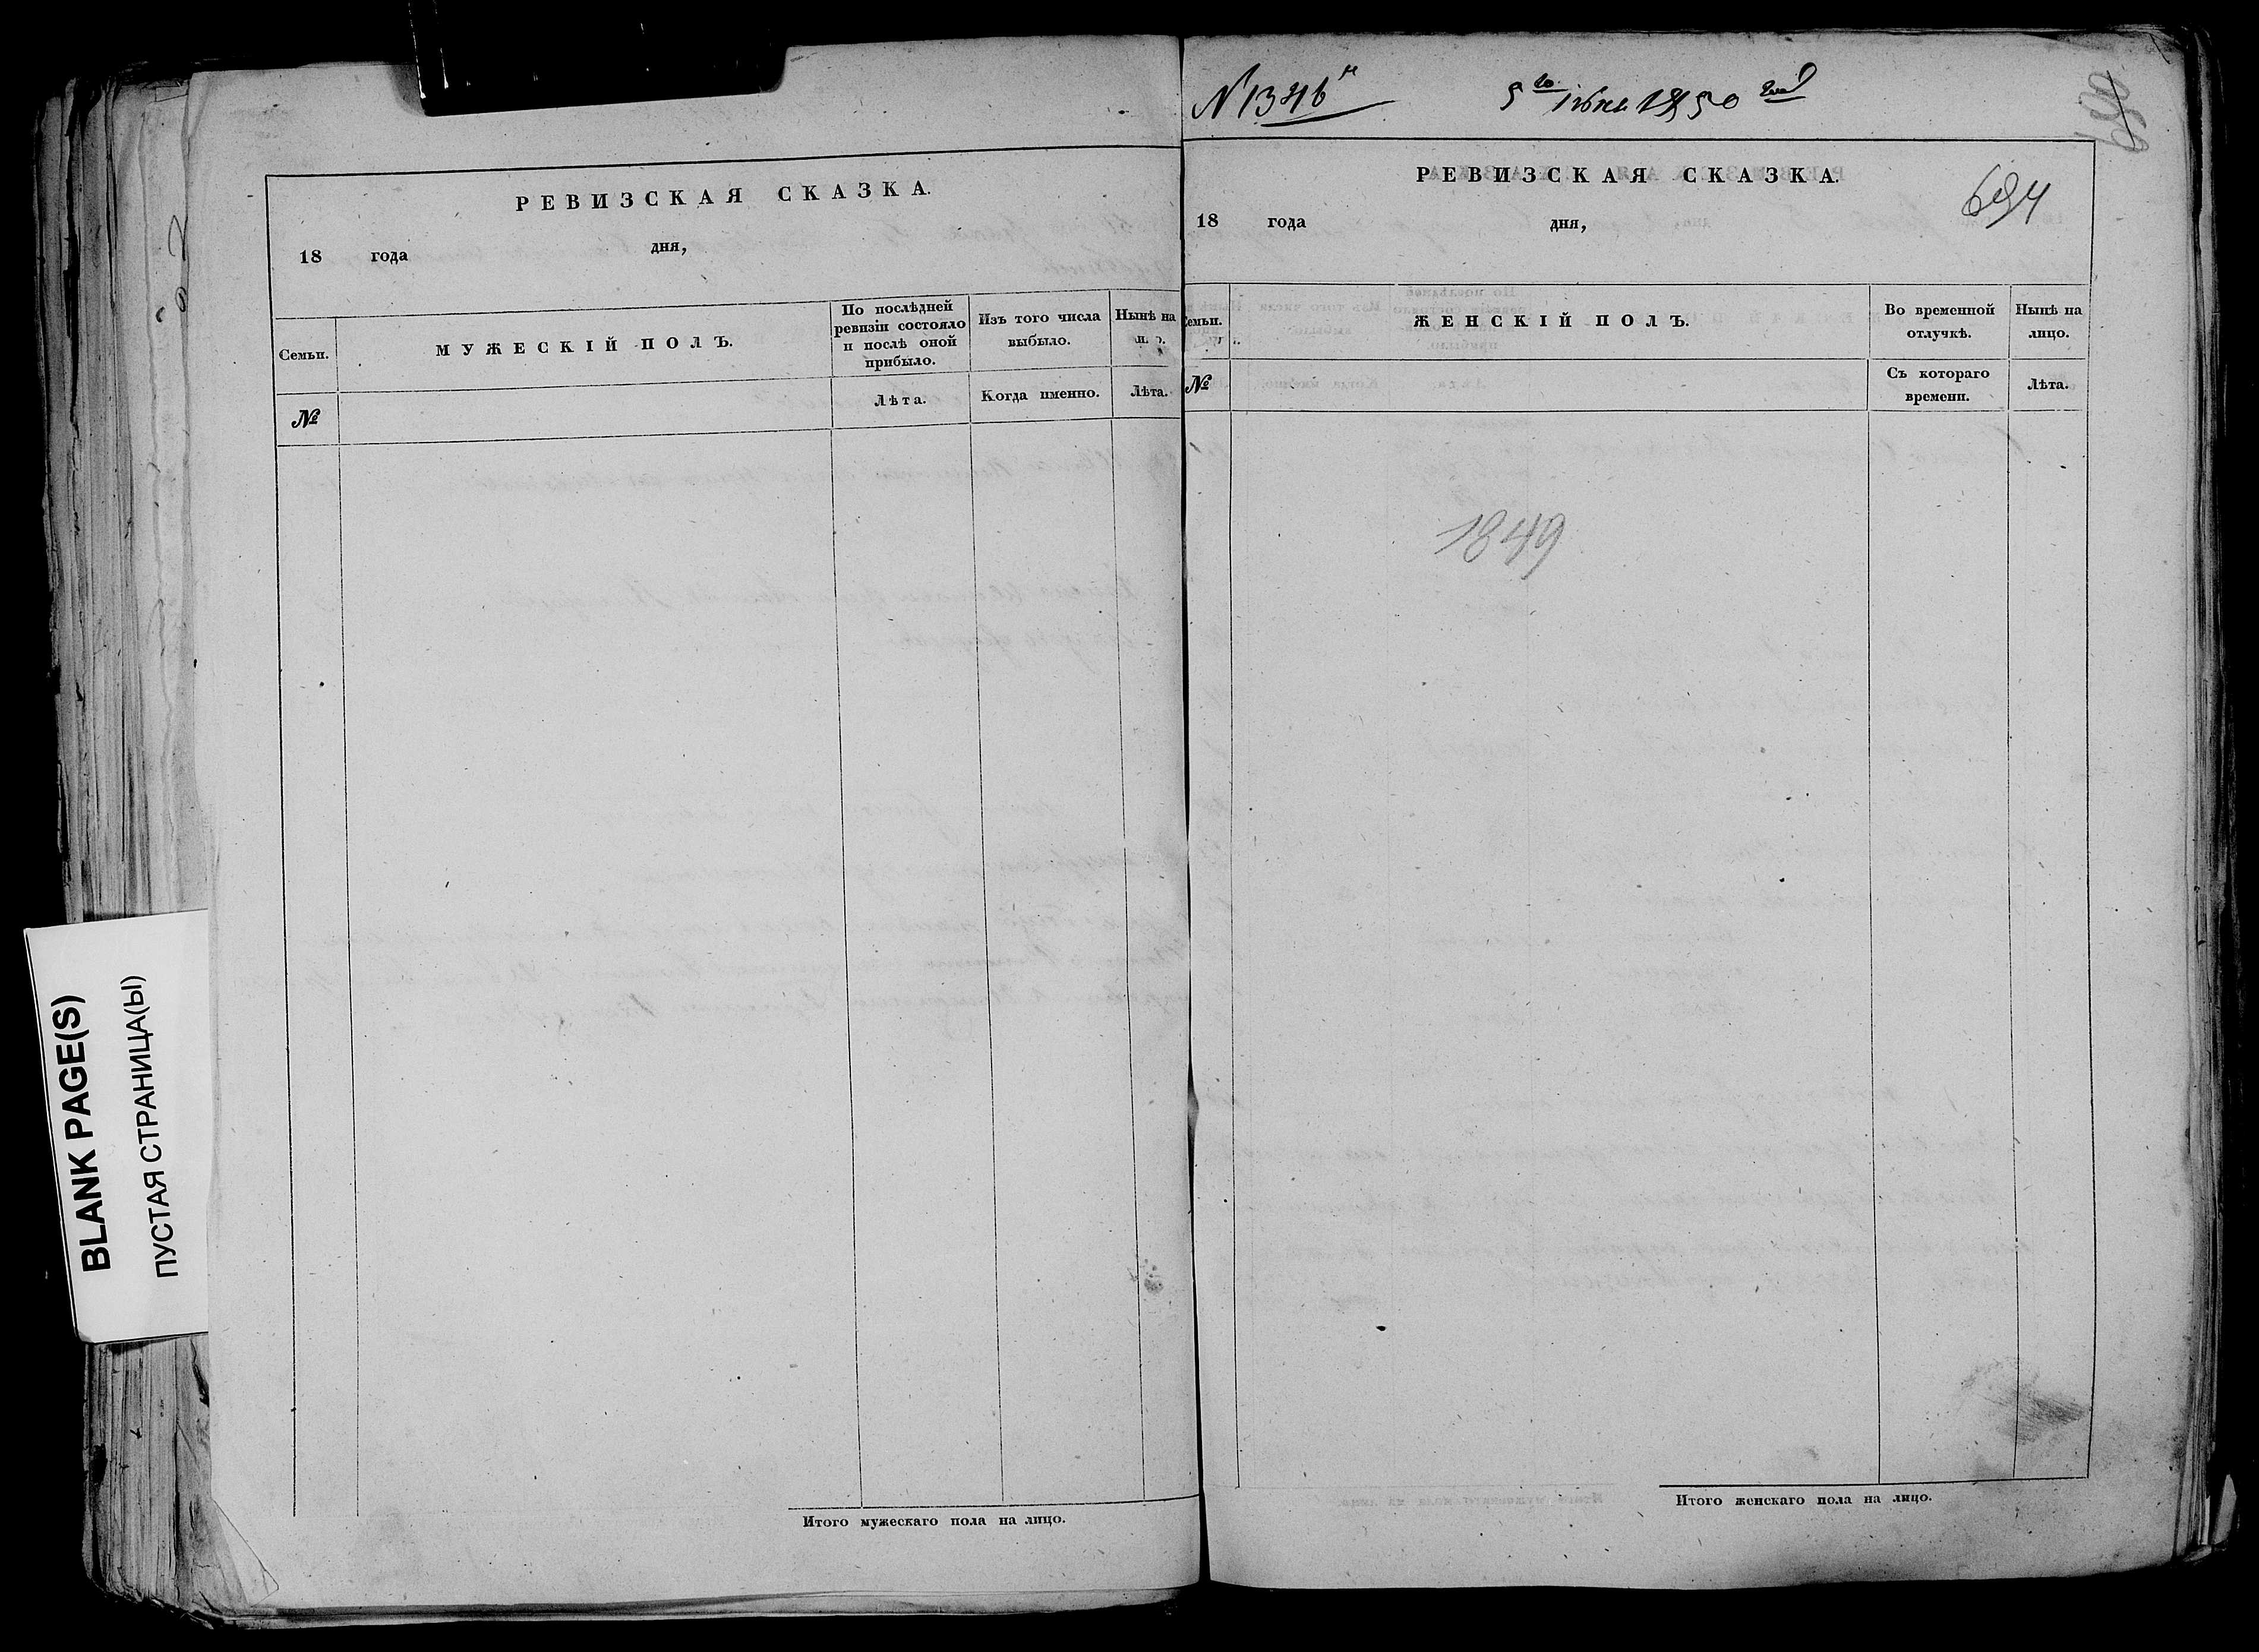 BLANK PAGE(S)
ПУСТАЯ СТРАНИЦА(Ы)
РЕВИЗСКАЯ СКАЗКА.
18 года дня,
Семьи.
МУЖЕСКІЙ ПОЛЪ.
По послѣдней
ревизіи состояло
и послѣ оной
прибыло.
Изъ того числа
выбыло.
Нынѣ на
№
Лѣта.
Когда именно.
Лѣта.
Итого мужескаго пола на лицо.
5го 1850
РЕВИЗСКАЯ СКАЗКА.
694
18 года дня,
Семьи.
ЖЕНСКІЙ ПОЛЪ.
Во временной
отлучкѣ.
Нынѣ на
лицо.
№
Съ котораго
времени.
Лѣта.
1849
Итого женскаго пола на лицо.